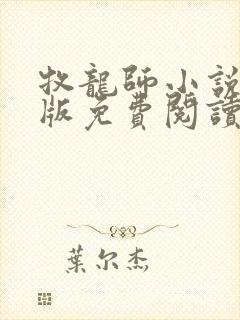 牧龍師小說
版免費閱讀
葉尔杰